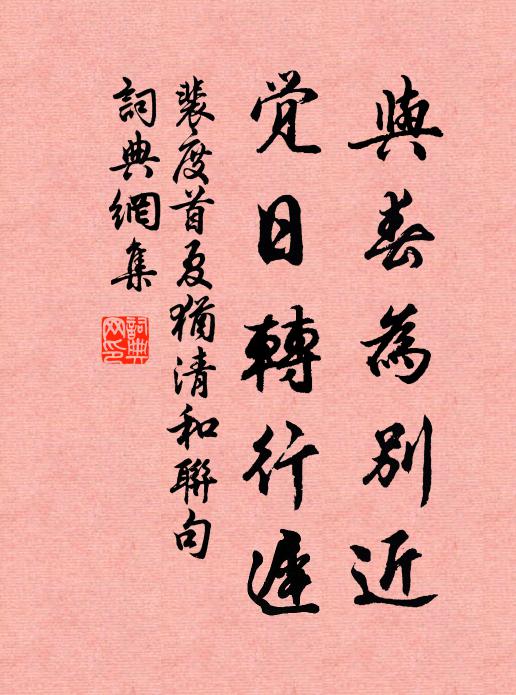 與春為別近
覺日轉行遲
裴度首夏猶清和聯句
詞典網集
詞典網印